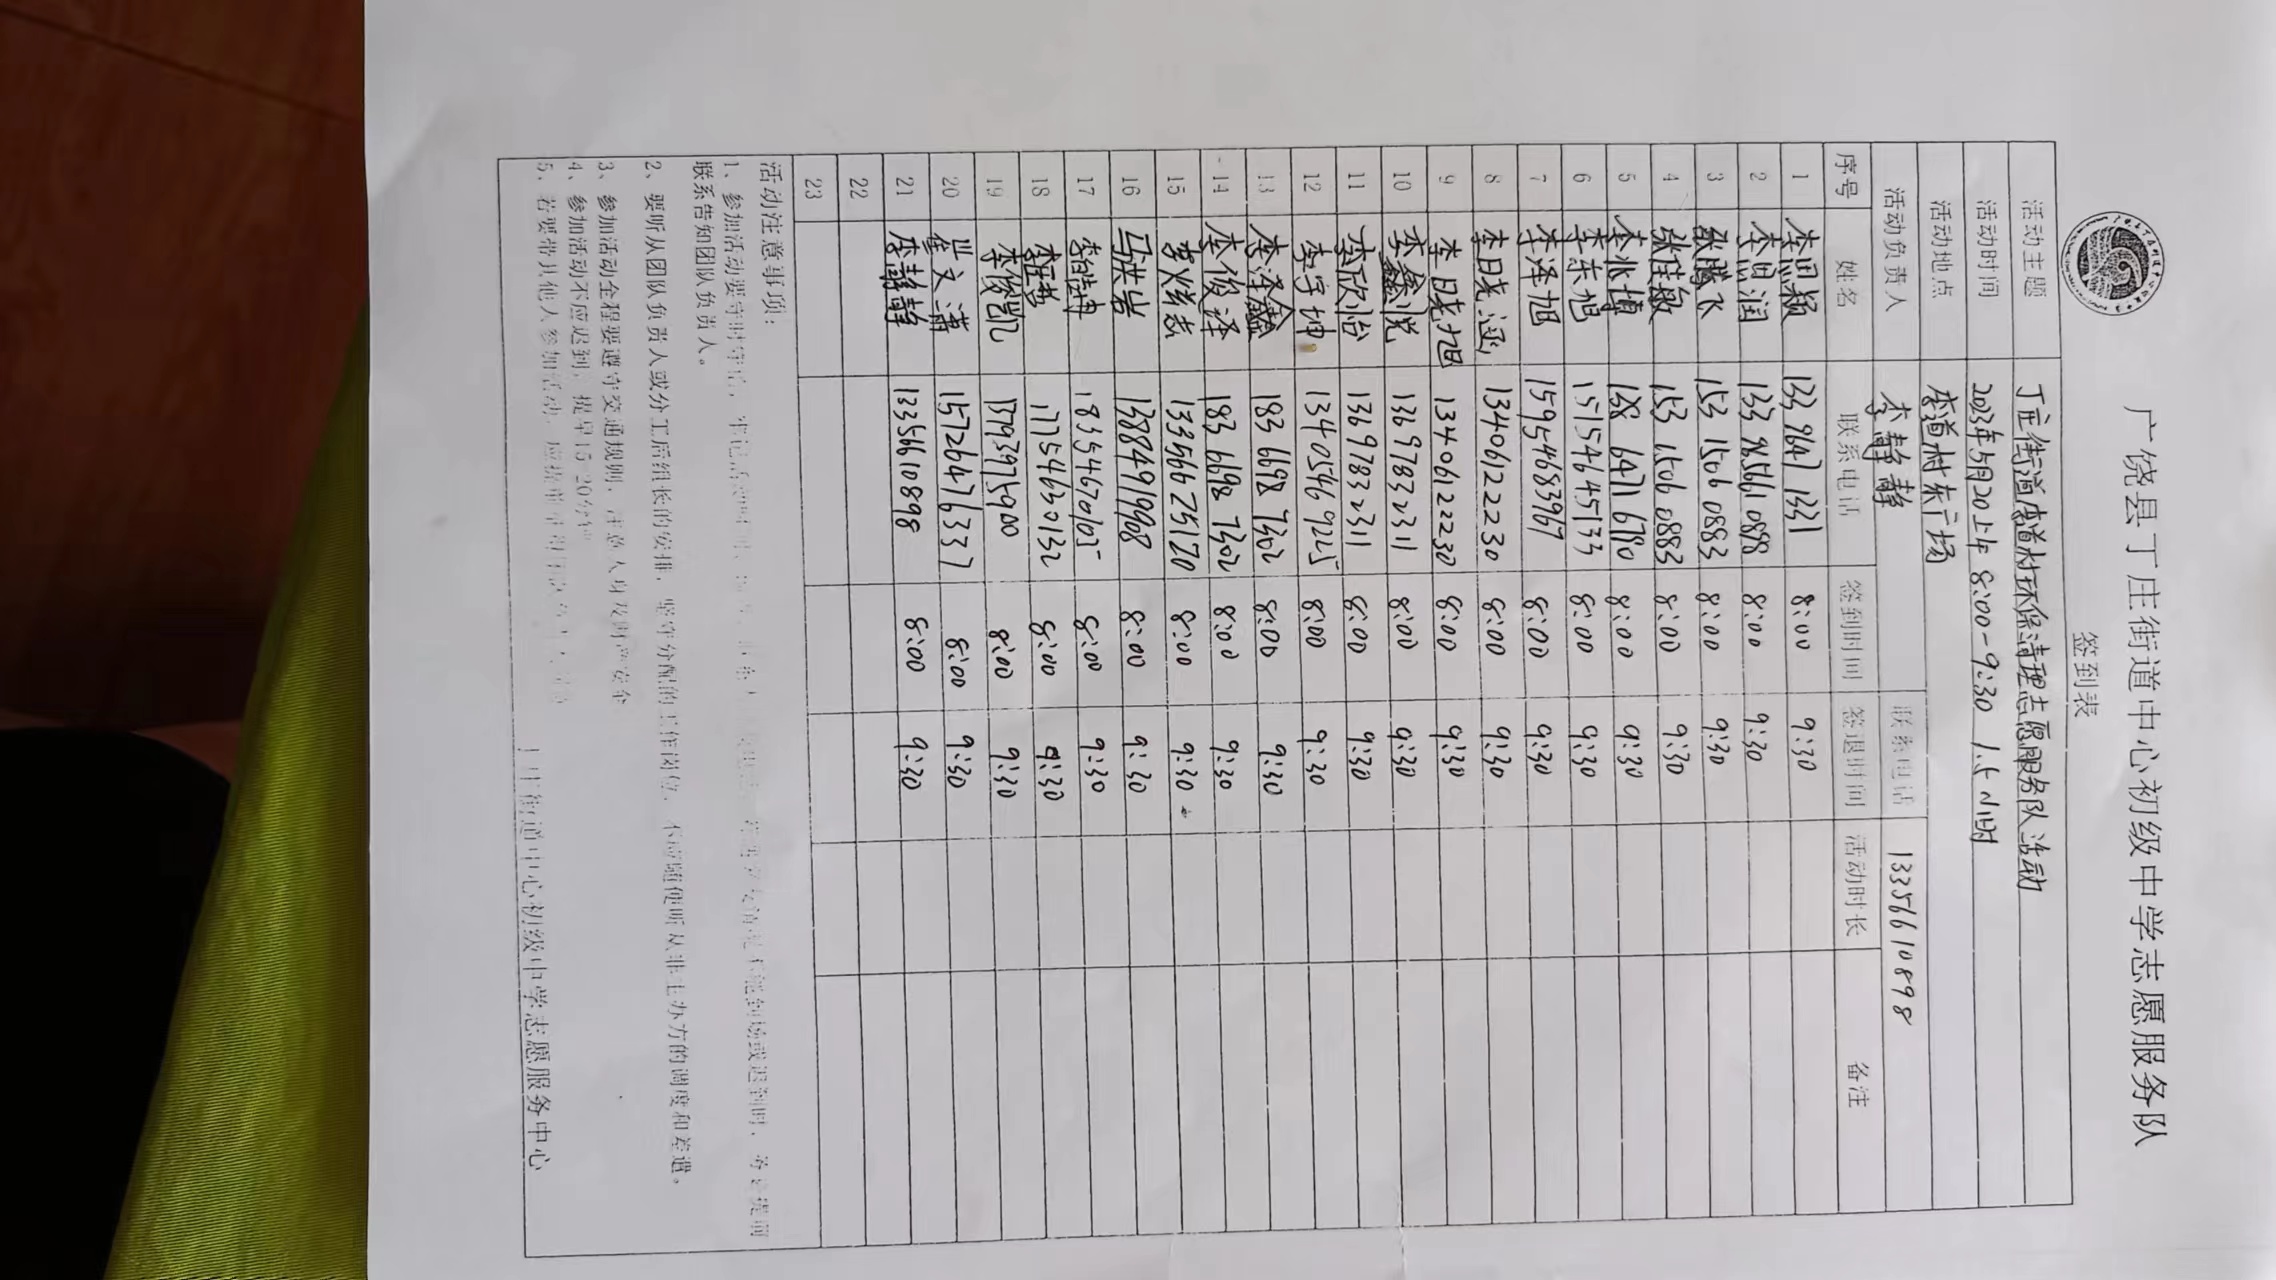 广饶县丁庄街道中心初级中学志愿服务队
签到表
活动主题 丁庄街道李道村环保清理志愿服务队活动
活动时间 2023年5月20上午 8:00-9:30 1.5小时
活动地点 李道村东广场
活动负责人 李静静 联系电话 13356610898
序号 姓名 联系电话 签到时间 签退时间 活动时长 备注
1 李思颖 133 9647 1331 8:00 9:30
2 李思润 133 98561 0898 8:00 9:30
3 张腾飞 153 1506 0883 8:00 9:30
4 张佳敏 153 1506 0883 8:00 9:30
5 李兆慎 138 6471 6780 8:00 9:30
6 李东旭 15154645133 8:00 9:30
7 李泽旭 15954683967 8:00 9:30
8 李晓涵 13406122230 8:00 9:30
9 李晓旭 13406122230 8:00 9:30
10 李鑫悦 13697832311 8:00 9:30
11 李欣怡 13697832311 8:00 9:30
12 李宇坤 13405469225 8:00 9:30
13 李泽鑫 183 6698 7302 8:00 9:30
14 李俊泽 183 6698 7302 8:00 9:30
15 13356625120 8:00 9:30
16 马洪岩 13884919908 8:00 9:30
17 18354670105 8:00 9:30
18 17754630132 8:00 9:30
19 李俊凯 8:00 9:30
20 崔文潇 15726476337 8:00 9:30
21 李静静 13356610898 8:00 9:30
22
23
活动注意事项：
1、参加活动要守时守信，
联系告知团队负责人。
2、要听从团队负责人或分工后组长的安排，坚守分配的工作岗位，不应随便听从非主办方的调度和差遣。
3、参加活动全程要遵守交通规则，注意人身及财产安全
4、参加活动不应迟到，提早15-20分钟
5、若要带其他人参加活动，
丁庄街道中心初级中学志愿服务中心